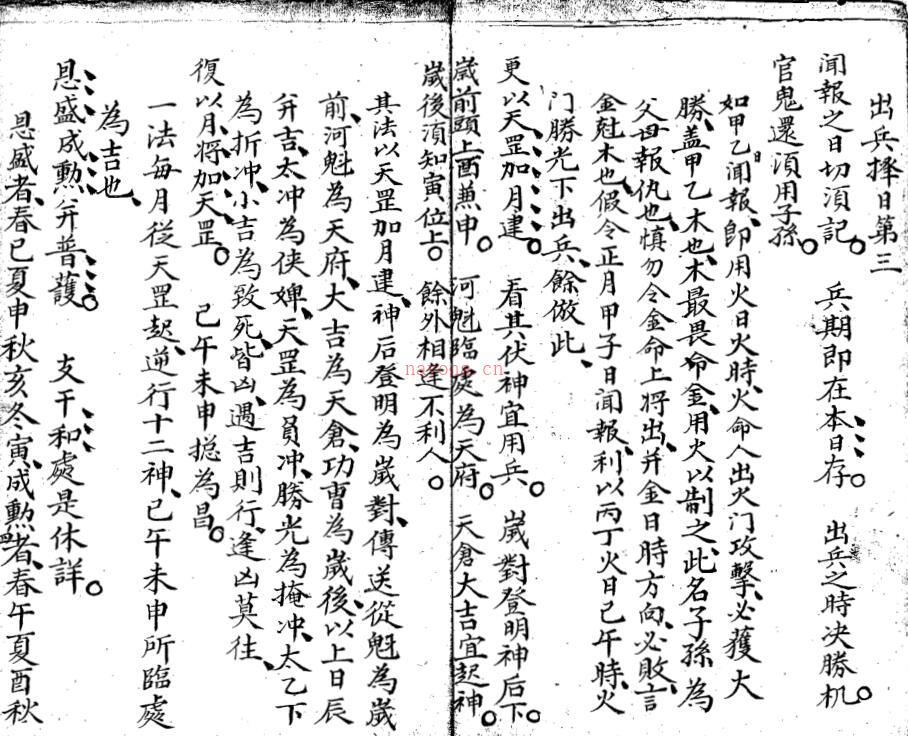 出兵擇日第三
聞報之日切須記。 兵期即在本日存。 出兵之時決勝机。
官鬼還須用子孫。
如甲乙聞報、即用火日火時、火命人出火门攻擊、必獲大
勝、盖甲乙木也、木最畏命金、用火以制之、此名子孫為
父母報仇也、慎勿令金命上將出、并金日時方向、必敗、言
金尅木也、假令正月甲子日聞報、利以丙丁火日巳午時、火
门勝光下出兵、餘倣此、
更以天罡加月建。 看其伏神宜用兵。 歲對登明神后下。
歲前頤上酉兼申。 河魁臨處為天府。 天倉大吉宜起神。
歲後須知寅位上。 餘外相逢不利人。
其法以天罡加月建、神后登明為歲對、傳送從魁為歲
前、河魁為天府、大吉為天倉、功曹為歲後、以上日辰
并吉、太冲為侠婢、天罡為員冲、勝光為掩冲、太乙下
為折冲、小吉為致死、皆凶、遇吉則行、逢凶莫往、
復以月將加天罡。 巳午未申捴為昌。
一法每月從天罡起、逆行十二神、巳午未申所臨處
為吉也、
恩盛成勳并普護。 支干和處是休詳。
恩盛者、春巳夏申秋亥冬寅、成勳者、春午夏酉秋
nayona.cn